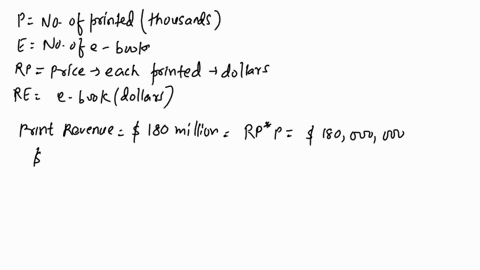 P = No. of printed (thousands)
E = No. of e-book
RP = price → each printed → dollars
RE = e-book (dollars)
Print Revenue = $ 180 million = RP*P = $ 180,000,000
$